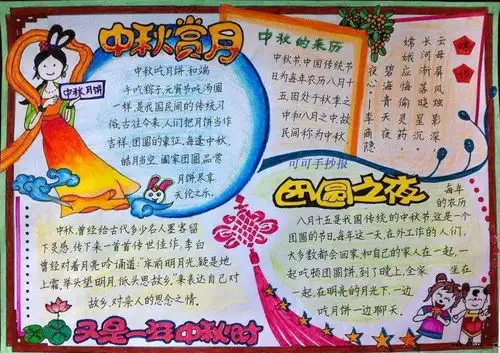 中秋赏月
中秋月饼
中秋吃月饼和端
午吃粽子、元宵节吃汤圆
一样是我国民间的传统习
俗。古往今来,人们把月饼当作
吉祥、团圆的象征。每逢中秋,
皓月当空,阖家团圆,品赏
月饼尽享
天伦之乐。
中秋的来历
中秋节中国传统节
日为每年农历八月十
五,因处于秋季之
中和八月之中故
民间称为中秋
嫦娥
云母屏风烛影深
长河渐落晓星沉
嫦娥应悔偷灵药
碧海青天夜夜心
—李商隐
可可手抄报
团圆之夜
每年
的农历
八月十五是我国传统的中秋节,这是一个
团圆的节日。每年这一天,在外工作的人们,
大多数都会回家,和自己的家人在一起,一
起吃顿团圆饼,到了晚上,全家坐在
一起,在明亮的月光下,一边
吃月饼一边聊天。
中秋,曾经给古代多少名人墨客留
下灵感,传下来一首首传世佳作,李白
曾经对着月亮吟诵道:“床前明月光,疑是地
上霜,举头望明月,低头思故乡。”来表达自己对
故乡,对亲人的思念之情。
又是一年中秋时